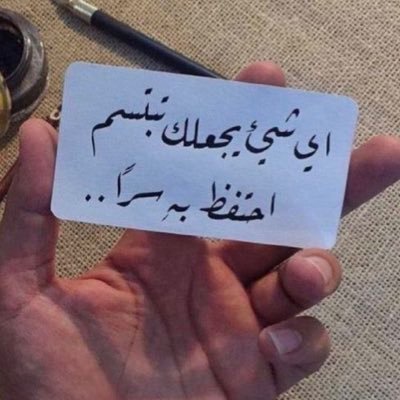 اي شيئ يجعلك تبتسم
احتفظ به سرًا..